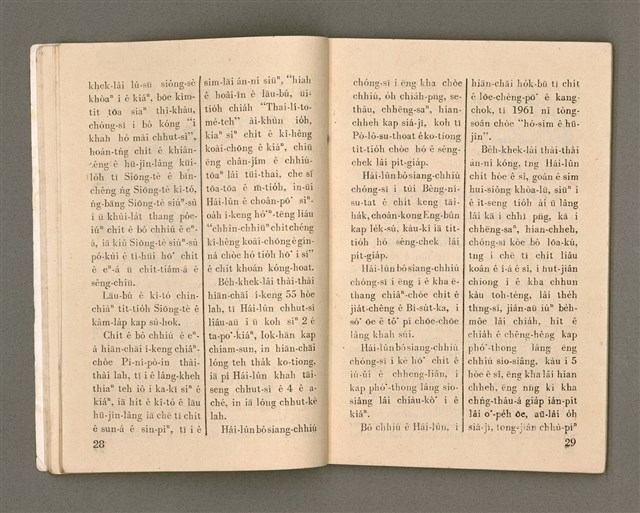 khek-lâi lú-sū siông-sè
khòaⁿ i ê kiáⁿ, bōe kìm-
tit tōa siaⁿ thî-khàu,
chóng-sī i bô kóng “i
khah hó mài chhut-sì”.
hoán-tńg chit ê khiân-
sêng ê hū-jîn-lâng kūi-
lòh tī Siōng-tè ê bīn-
chêng n̄g Siōng-tè kî-tó,
ǹg-bāng Siōng-tè siúⁿ-sù
i ū khùi-lat thang pôe-
iúⁿ chit ê bô chhiú ê eⁿ-
á, iā kiû Siōng-tè siúⁿ-sù
pó-kùi ê tì-hūi hō͘ chit
ê eⁿ-á ū chit-tiám-á ê
sêng-chiū.
Lāu-bú ê kî-tó chin-
chiàⁿ tit-tiòh Siōng-tè ê
kàm-lâp kap sù-hok.
Chit ê bô chhiú ê eⁿ-
á hiān-chāi í-keng chiâⁿ-
chòe Pí-ní-pò-ín thài-
thài lah, tī i ê lâng-kheh
thiaⁿ teh iô i ka-kī siⁿ ê
kiáⁿ, iā hit ê kî-tó ê lāu
hū-jîn-lâng iā chē tī chit
ê sun-á ê sin-piⁿ, tī i ê
28
sim-lāi án-ni siūⁿ, “hiah
ê hoâi-īn ê lāu-bú, ūi-
tiòh chiàh “Thai-lí-to-
mé-teh” ài-khùn iòh,
kiaⁿ siⁿ chit ê kî-hêng
koài-chōng ê kiáⁿ, chiū
ēng chân-jím ê chhiú-
tōaⁿ lâi tūi-thai, che sī
tōa-tōa ê m̄-tiòh, in-ūi
Hái-lûn ê choân-pō͘ siⁿ-
oàh í-keng hó͘ⁿ-tēng liáu
“chhin-chhiūⁿ chit chéng
kî-hêng koài-chōng ê gín-
ná chòe hō tiòh hō͘ i sí”
ê chit khoán kóng-hoat.
Bèh-khek-lâi thài-thài
hiān-chāi í-keng 55 hòe
lah, tī Hái-lûn chhut-sì
liáu-āu i ū koh siⁿ 2 ê
ta-po͘-kiáⁿ, lok-hān kap
chiam-sun, in hiān-chāi
lóng teh thàk ko-tiong,
iā pí Hái-lûn khah tāi-
seng chhut-sì ê 4 ê a-
ché, in iā lóng chhut-kè
lah.
Hái-lûn bô siang-chhiú
chóng-sī i ēng kha chòe
chhiú, òh chiàh-pn̄g, se-
thâu, chhēng-saⁿ, hian-
chheh kap siá-jī, koh tī
Pò-lò-su-thoat èko-tiong
tit-tiòh chòe hó ê sêng-
chek lâi pit-giàp.
Hái-lûn bô siang-chhiú
chóng-sī i tùi Bêng-nî-
su-tat ê chit keng tāi-
hàk, choân-kong Eng-bûn
kap lék-sú, kàu-kî iā tit-
tiòh hó sêng-chek lâi
pit-giàp.
Hái-lûn bô siang-chhiú
chóng-sī i ēng i ê kha ê-
thang chiâⁿ-chòe chit ê
jiát-chêng ê Bí-sut-ka, i
só͘ ōe ê tô͘ pí chōe-chōe
lâng khah súi.
Hái-lûn bô siang-chhiú
chóng-sī i kè hō͘ chit ê
iú-ûi ê chheng-liân, i
kap phó͘-thong lâng sio-
siâng lâi chiàu-kò͘ i ê
kiáⁿ.
Bô chhiú ê Hái-lûn, i
hiān-chāi hòk-bū tī chit
ê lōe-chèng-pō͘ ê kang-
chok, tī 1961 nî tòng-
soán chòe “hó-sim ê hū-
jîn”.
Bèh-khek-lâi thài-thài
án-ni kóng, tng Hái-lûn
chit hòe ê sî, goán ê sim
hui-siông khòa-lū, siūⁿ i
ê it-seng tiòh ài ū lâng
lâi kā i chhī pn̄g, kā i
chhēng-saⁿ, hian-chheh,
chóng-sī kòe bô lōa-kú,
tng i chē tī chit liâu
koân ê í-á ê sî, i hut-jiân
chiong i ê kha chhun
kàu toh-téng, lâi thèh
thng-sî, jiân-āu iúⁿ bèh-
môe lâi chiàh, hit ê
chiàh ê chêng-hêng kap
phó͘-thong lâng ēng
chhiú sio-siâng, kàu i 5
hòe ê sî, ēng kha lâi hian
chheh, ēng nn̄g ki kha
chńg-thâu-á giáp iân-pit
lâi o͘-pèh ōe, aū-lâi òh
siá-jī, tong-jiân chhù-piⁿ
29